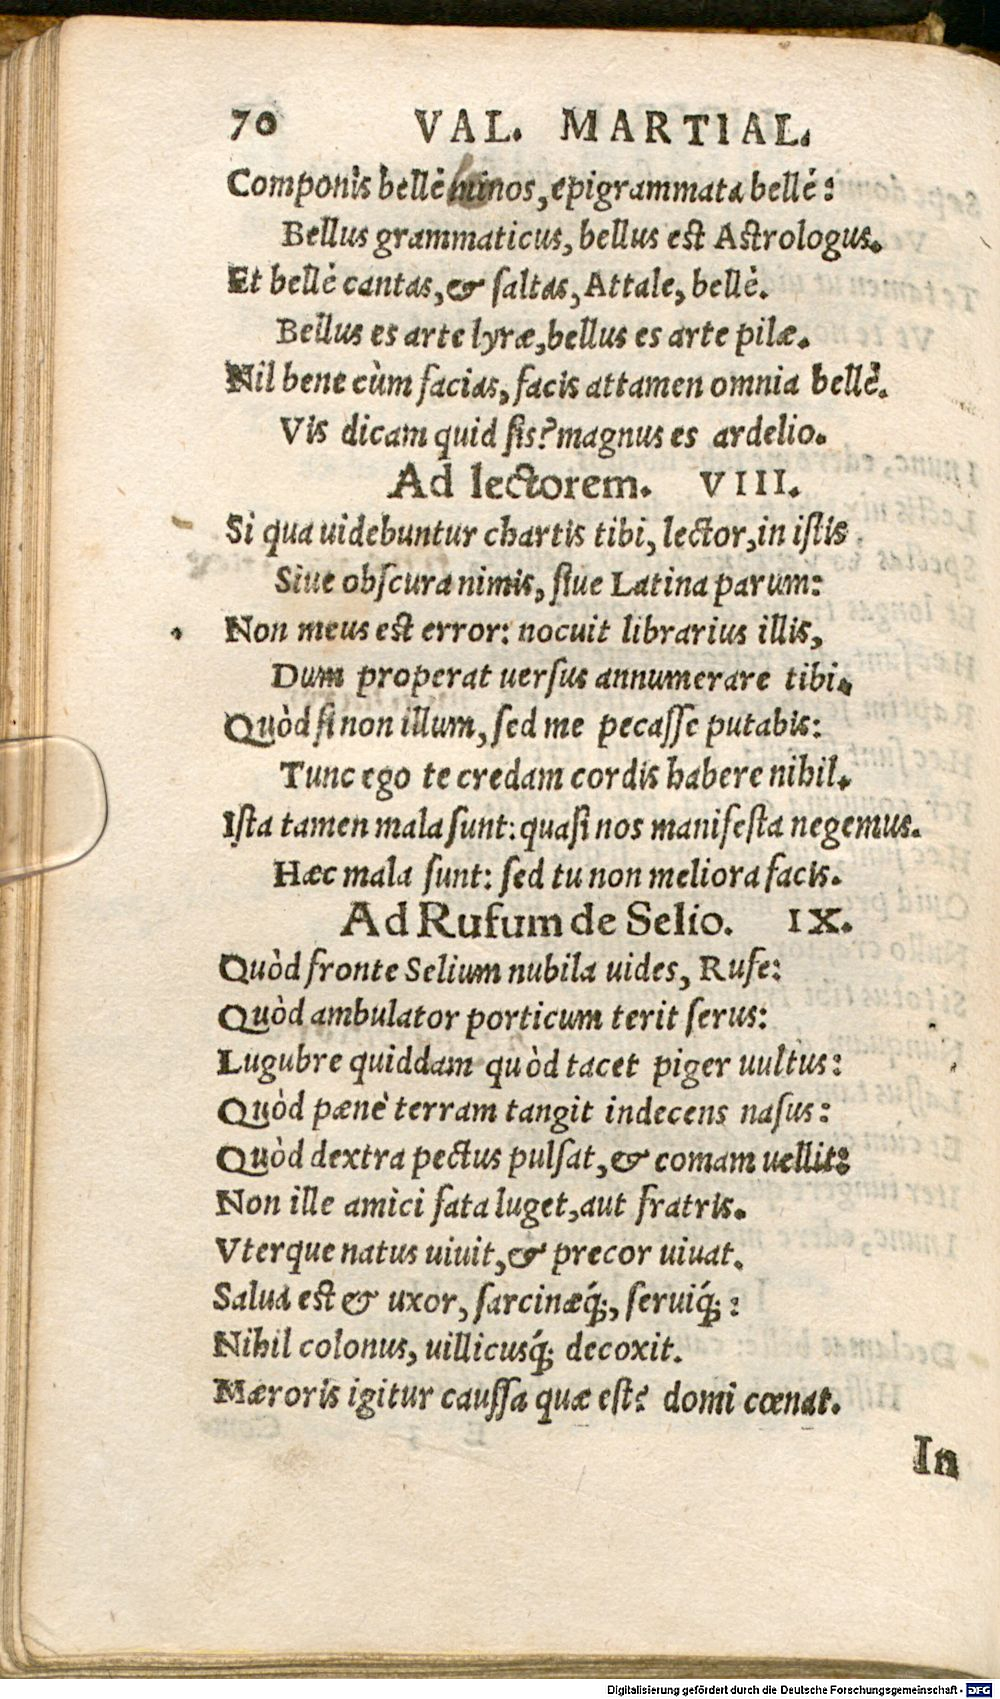 70 VAL. MARTIAL.
Componis bellè mimos, epigrammata bellè:
Bellus grammaticus, bellus est Astrologus.
Et bellè cantas, & ſaltas, Attale, bellè.
Bellus es arte lyræ, bellus es arte pilæ.
Nil bene cùm facias, facis attamen omnia bellè.
Vis dicam quid ſis? magnus es ardelio.
Ad lectorem. VIII.
Si qua uidebuntur chartis tibi, lector, in iſtis
Siue obſcura nimis, ſiue Latina parum:
Non meus est error: nocuit librarius illis,
Dum properat uerſus annumerare tibi.
Quòd ſi non illum, ſed me pecaſſe putabis:
Tunc ego te credam cordis habere nihil.
Iſta tamen mala ſunt: quaſi nos manifeſta negemus.
Hæc mala ſunt: ſed tu non meliora facis.
Ad Rufum de Selio. IX.
Quòd fronte Selium nubila uides, Rufe:
Quòd ambulator porticum terit ſerus:
Lugubre quiddam quòd tacet piger uultus:
Quòd pænè terram tangit indecens naſus:
Quòd dextra pectus pulſat, & comam uellit:
Non ille amici fata luget, aut fratris.
Vterque natus uiuit, & precor uiuat.
Salua est & uxor, ſarcinæq́;, ſeruiq́;:
Nihil colonus, uillicusq́; decoxit.
Mæroris igitur cauſſa quæ eſt? domi cœnat.
In
Digitalisierung gefördert durch die Deutsche Forschungsgemeinschaft - DFG